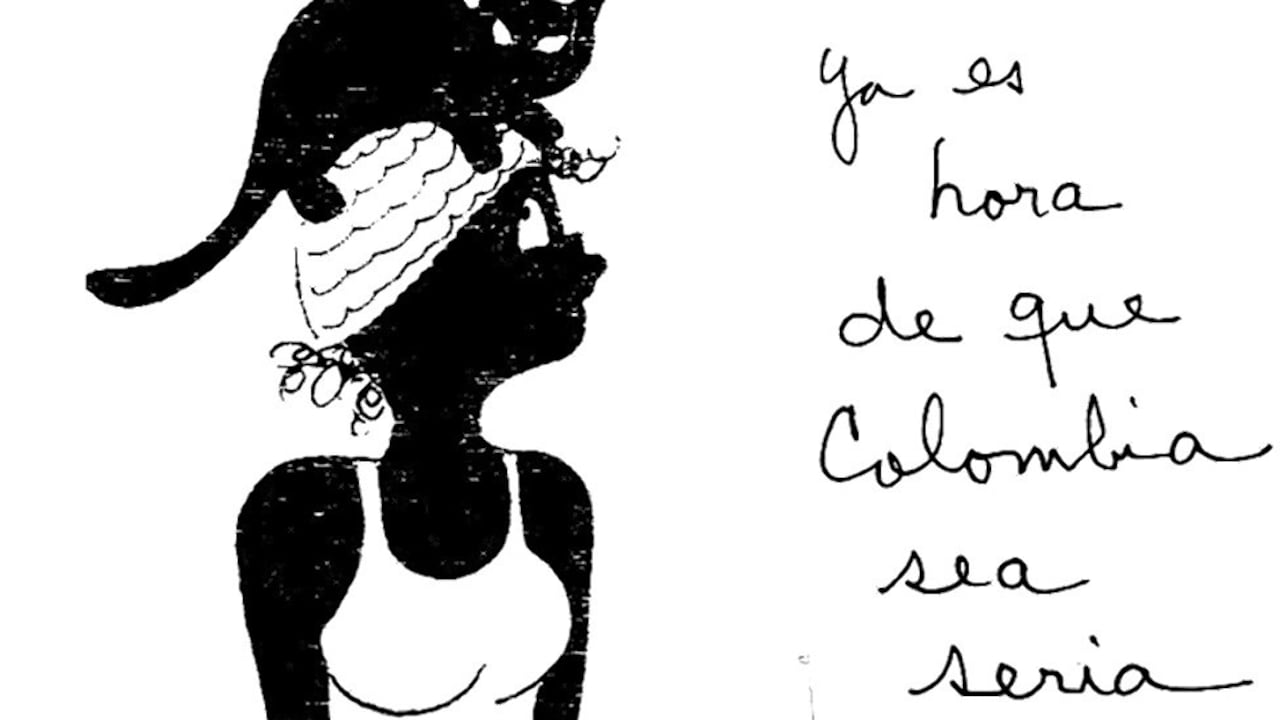 ya es
hora
de que
Colombia
sea
seria